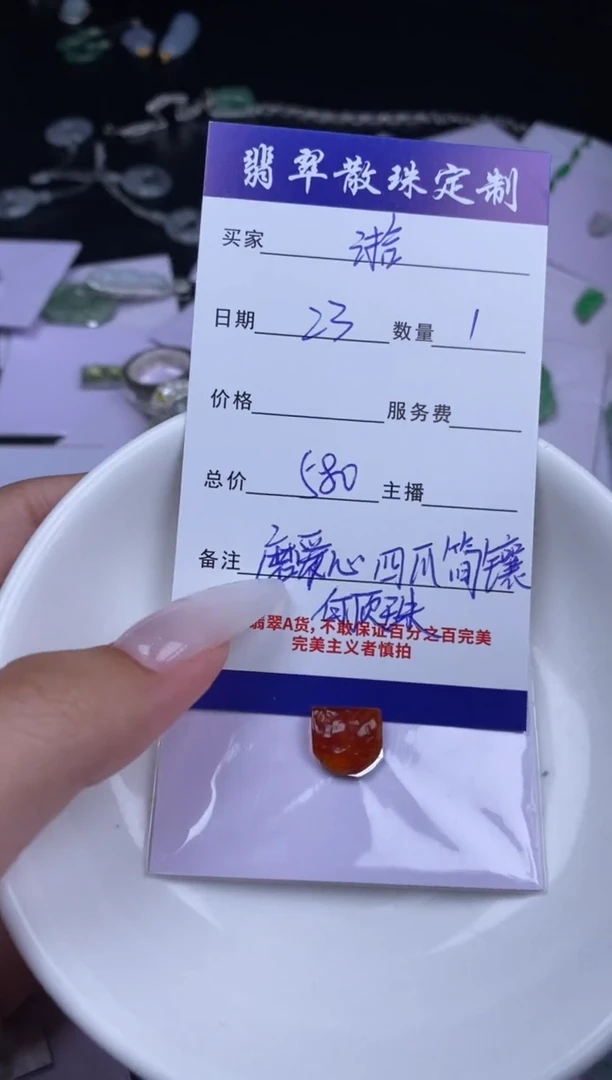 翡翠散珠定制
买家
日期 23 数量 1
价格 服务费
总价 580 主播
备注 磨爱心 四爪简镶
顶珠
翡翠A货,不敢保证百分之百完美
完美主义者慎拍